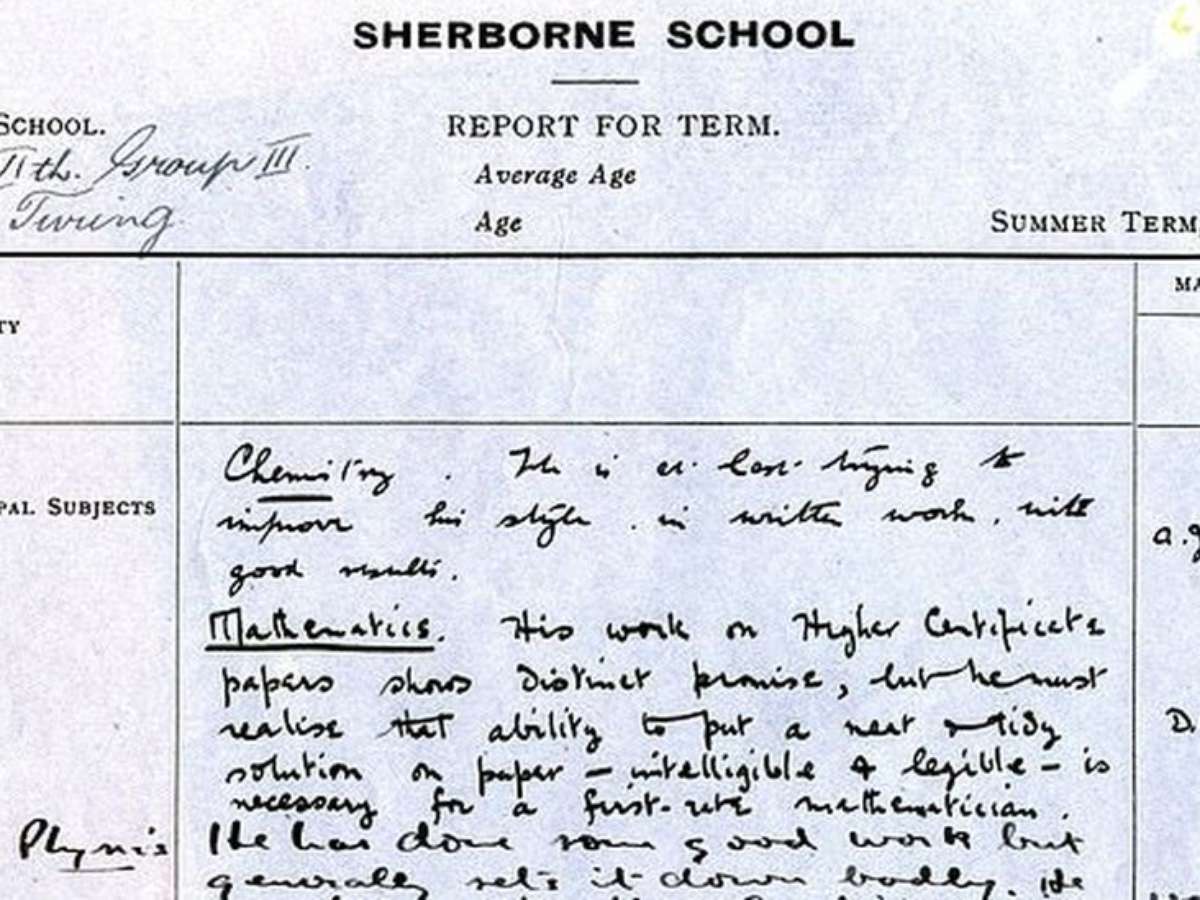 SHERBORNE SCHOOL
SCHOOL.
REPORT FOR TERM.
VIth. Group III.
Average Age
Turing
Age
SUMMER TERM,
MA
TY
Chemistry. He is at last trying to
improve his style in written work, with
PAL SUBJECTS
good results.
Mathematics. His work on Higher Certificate
papers shows distinct promise, but he must
realise that ability to put a neat & tidy
D.
solution on paper – intelligible & legible – is
necessary for a first-rate mathematician.
Physics
He has done some good work but
generally sets it down badly. He